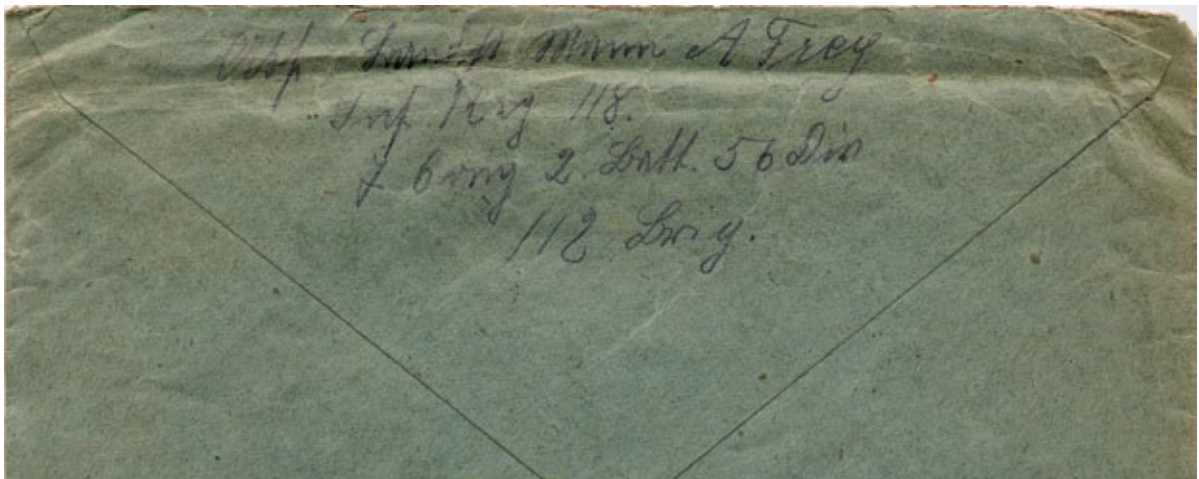 Abs. Landst Mann A Frey
Inf Reg 118.
7 Comp 2. Batt. 56 Div
112 Brig.